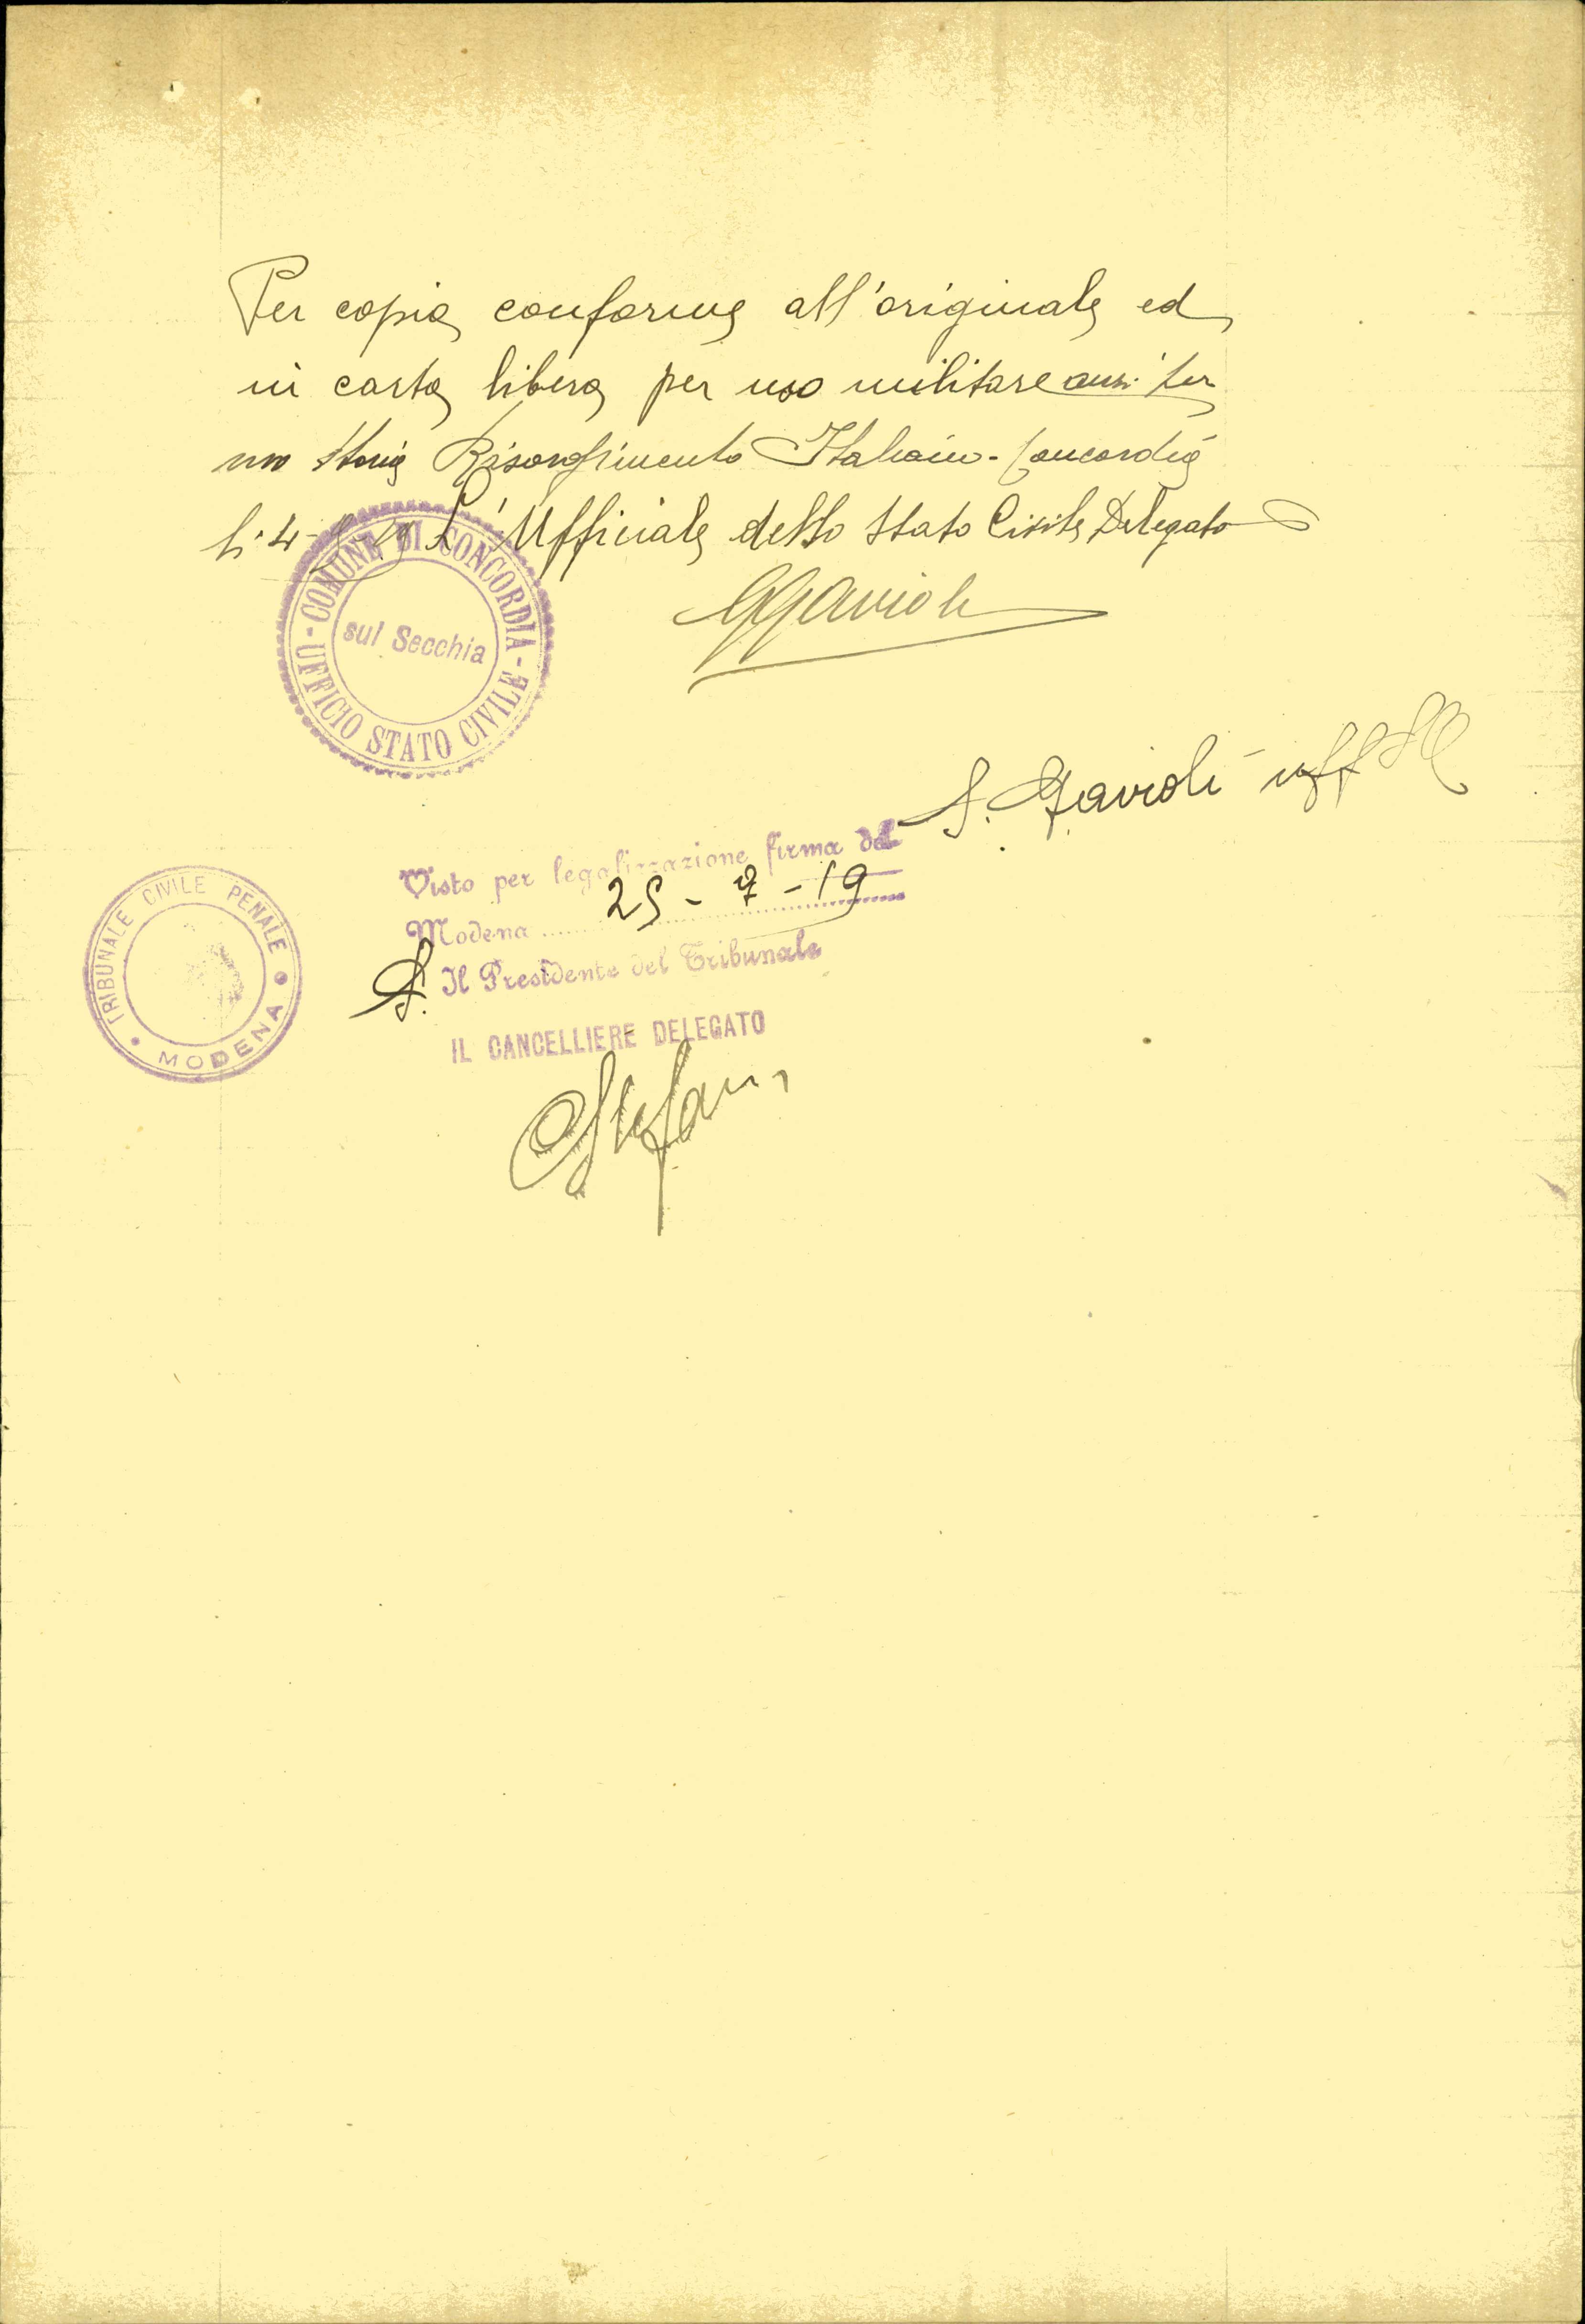 Per copia conforme all'originale ed
in carta libera per uso militare anzi per
uso Storia Risorgimento Italiano - Concordia
li 4 L'Ufficiale dello Stato Civile Delegato
GGavioli
COMUNE DI CONCORDIA - UFFICIO STATO CIVILE -
sul Secchia
Visto per legalizzazione firma del S. Gavioli uff
Modena 25 - 7 - 19
Il Presidente del Tribunale
TRIBUNALE CIVILE PENALE
MODENA
IL CANCELLIERE DELEGATO
Stefani